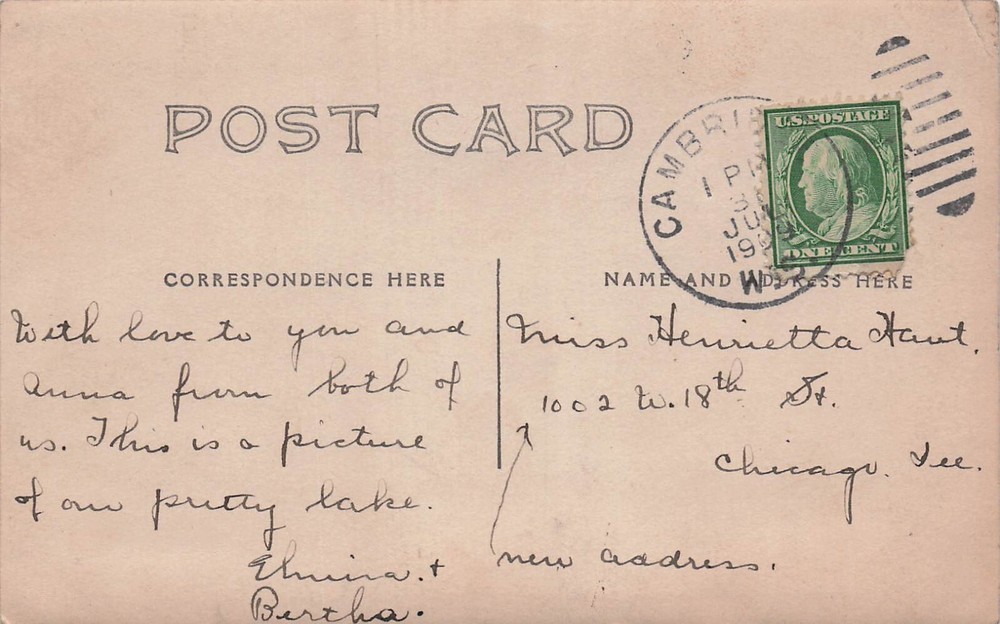 POST CARD
CAMBRI
1 PM
JUL
19
WIS.
U.S. POSTAGE
ONE CENT
CORRESPONDENCE HERE
NAME AND ADDRESS HERE
With love to you and
Anna from both of
us. This is a picture
of our pretty lake.
Elmira. +
Bertha.
Miss Henrietta Haut.
1002 W. 18th St.
Chicago. Ill.
new address.